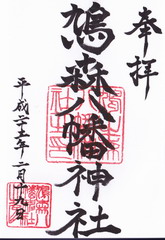 奉拝
鳩森八幡神社
平成二十五年一月十九日